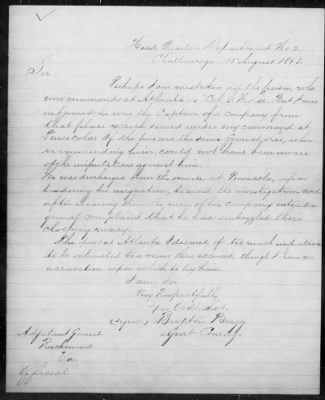 Head Quarters Department No 2
Chattanooga 18 August 1862
Sir.
Perhaps I am mistaken in the person who
now commands at Atlanta a Col. But I was
informed he was the Captain of a company from
that place which served under my command at
Pensacola. If the person is the same
recommending him, could not have been aware
of the imputations against him.
He was discharged from the service at Pensacola, upon
tendering his resignation, to avoid the investigation and
after leaving there the men of his company entered a
general complaint that he had embezzled their
clothing money.
The post at Atlanta I deemed of too much importance
to be entrusted to a man thus accused, though I have no
accusation upon which to try him.
I am Sir
Very Respectfully
Your Obdt Svt.
(signed) Braxton Bragg
Genl Comdg.
Adjutant General
Richmond
Va
Official